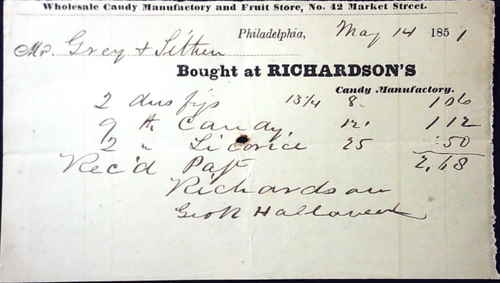 Wholesale Candy Manufactory and Fruit Store, No. 42 Market Street.
Philadelphia, May 14 1851
Mr. Grey &
Bought at RICHARDSON'S
Candy Manufactory.
2 figs 13 1/4 8 1 06
9 lb Candy, 12 1 12
2 " Licorice 25 50
2,68
Rec'd
Richardson